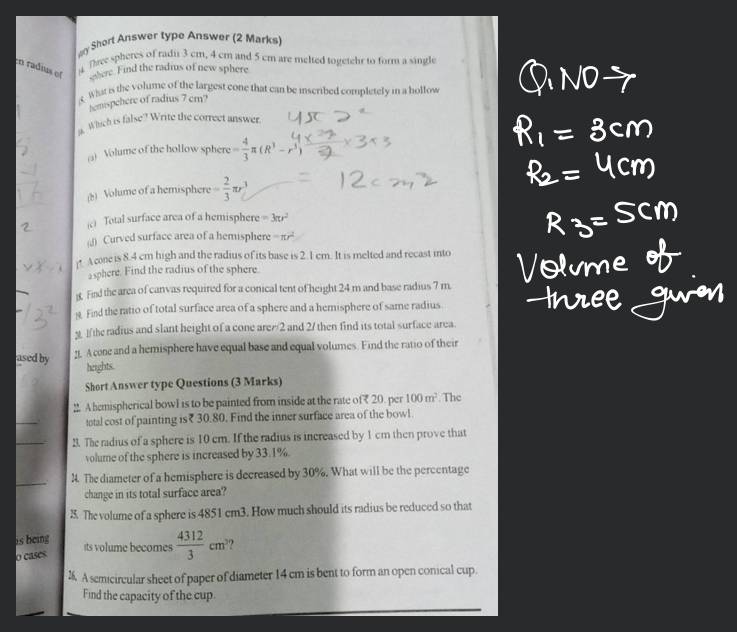 en radius of
ery Short Answer type Answer (2 Marks)
14. Three spheres of radii 3 cm, 4 cm and 5 cm are melted togetehr to form a single
sphere. Find the radius of new sphere.
15. What is the volume of the largest cone that can be inscribed completely in a hollow
hemispehere of radius 7 cm?
16. Which is false? Write the correct answer.
(a) Volume of the hollow sphere = 4/3 π (R³ – r³)
(b) Volume of a hemisphere = 2/3 πr³
= 12cm2
(c) Total surface area of a hemisphere = 3πr²
(d) Curved surface area of a hemisphere = πr²
17. A cone is 8.4 cm high and the radius of its base is 2.1 cm. It is melted and recast into
a sphere. Find the radius of the sphere.
18. Find the area of canvas required for a conical tent of height 24 m and base radius 7 m.
19. Find the ratio of total surface area of a sphere and a hemisphere of same radius.
20. If the radius and slant height of a cone are r/2 and 2l then find its total surface area.
21. A cone and a hemisphere have equal base and equal volumes. Find the ratio of their
heights.
ased by
Short Answer type Questions (3 Marks)
22. A hemispherical bowl is to be painted from inside at the rate of ₹ 20. per 100 m². The
total cost of painting is ₹ 30.80. Find the inner surface area of the bowl.
23. The radius of a sphere is 10 cm. If the radius is increased by 1 cm then prove that
volume of the sphere is increased by 33.1%.
24. The diameter of a hemisphere is decreased by 30%. What will be the percentage
change in its total surface area?
25. The volume of a sphere is 4851 cm3. How much should its radius be reduced so that
its volume becomes 4312/3 cm³?
as being
o cases
26. A semicircular sheet of paper of diameter 14 cm is bent to form an open conical cup.
Find the capacity of the cup.
Q.NO →
R1 = 3cm
R2 = 4cm
R3 = 5cm
Volume of
three given